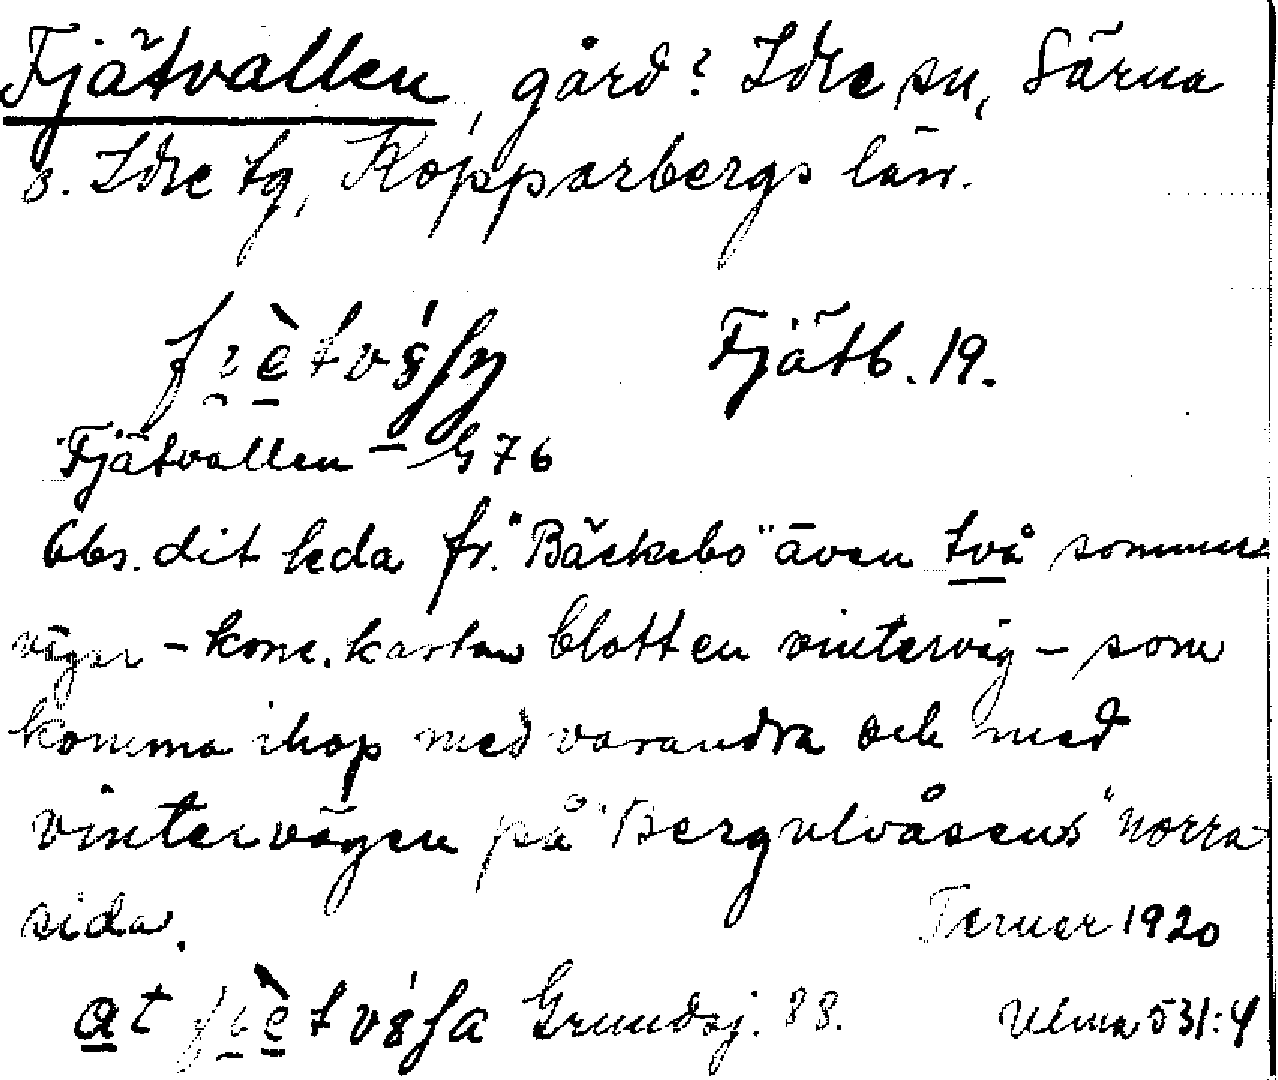 Fjätvallen, gård? Idre sn, Särna
o. Idre tg, Kopparbergs län.
Fjätb. 19.
Fjätvallen – G 76
Obs. dit leda fr. "Bäckebo" även två sommar
vägar – konc. kartan blott en vinterväg – som
komma ihop med varandra och med
vintervägen på "Bergulvåsens" norra
sida.
Terner 1920
at Grundsj. 88. Ulma 531:4